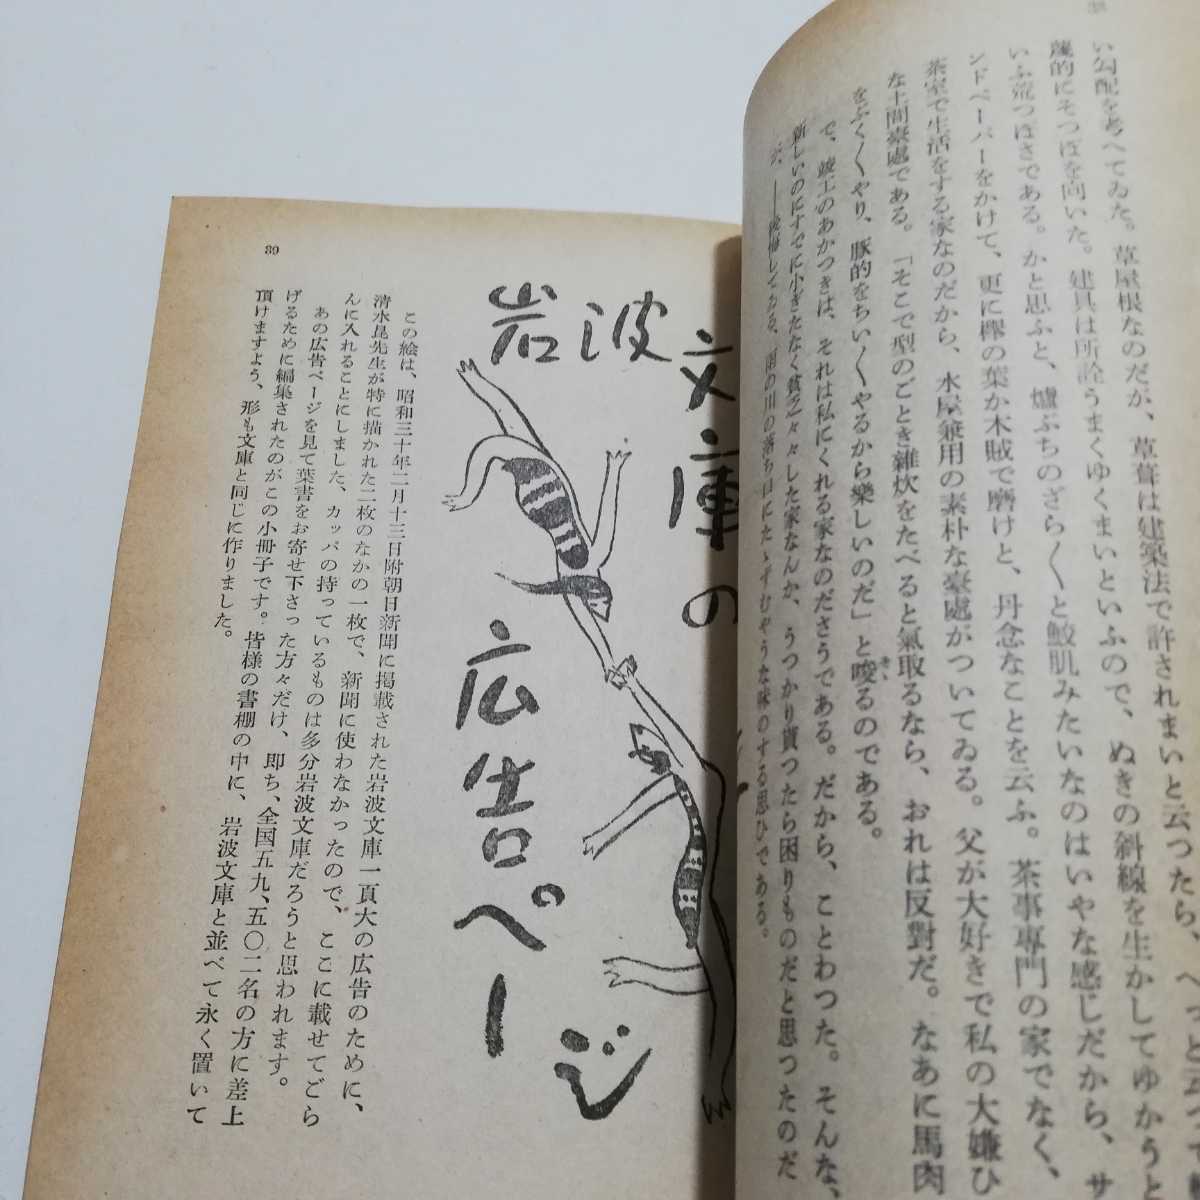 い勾配を考へてゐた。草屋根なのだが、草葺は建築法で許されまいと云つたら、
蔑的にそつぽを向いた。建具は所詮うまくゆくまいといふので、ぬきの斜線を生かしてゆかうと
いふ荒つぽさである。かと思ふと、爐ぶちのざら〱と鮫肌みたいなのはいやな感じだから、サ
ンドペーパーをかけて、更に欅の葉か木賊で磨けと、丹念なことを云ふ。茶事專門の家でなく、
茶室で生活をする家なのだから、水屋兼用の素朴な臺處がついてゐる。父が大好きで私の大嫌ひ
な土間臺處である。「そこで型のごとき雜炊をたべると氣取るなら、おれは反對だ。なあに馬肉
をぶく〱やり、豚的をちい〱やるから樂しいのだ」と唆るのである。
で、竣工のあかつきは、それは私にくれる家なのださうである。だから、ことわつた。そんな、
新しいのにすでに小ぎたなく貧乏々々した家なんか、うつかり貰つたら困りものだと思つたのだ
が、――後悔してゐる、雨の川の落ち口にたゝずむやうな味のする思ひである。
岩波
文庫の
広告ペー
ジ
この絵は、昭和三十年二月十三日附朝日新聞に掲載された岩波文庫一頁大の広告のために、
清水崑先生が特に描かれた二枚のなかの一枚で、新聞に使わなかったので、ここに載せてごら
んに入れることにしました、カッパの持っているものは多分岩波文庫だろうと思われます。
あの広告ページを見て葉書をお寄せ下さった方々だけ、即ち、全国五九、五〇二名の方に差上
げるために編集されたのがこの小冊子です。皆様の書棚の中に、岩波文庫と並べて永く置いて
頂けますよう、形も文庫と同じに作りました。
39